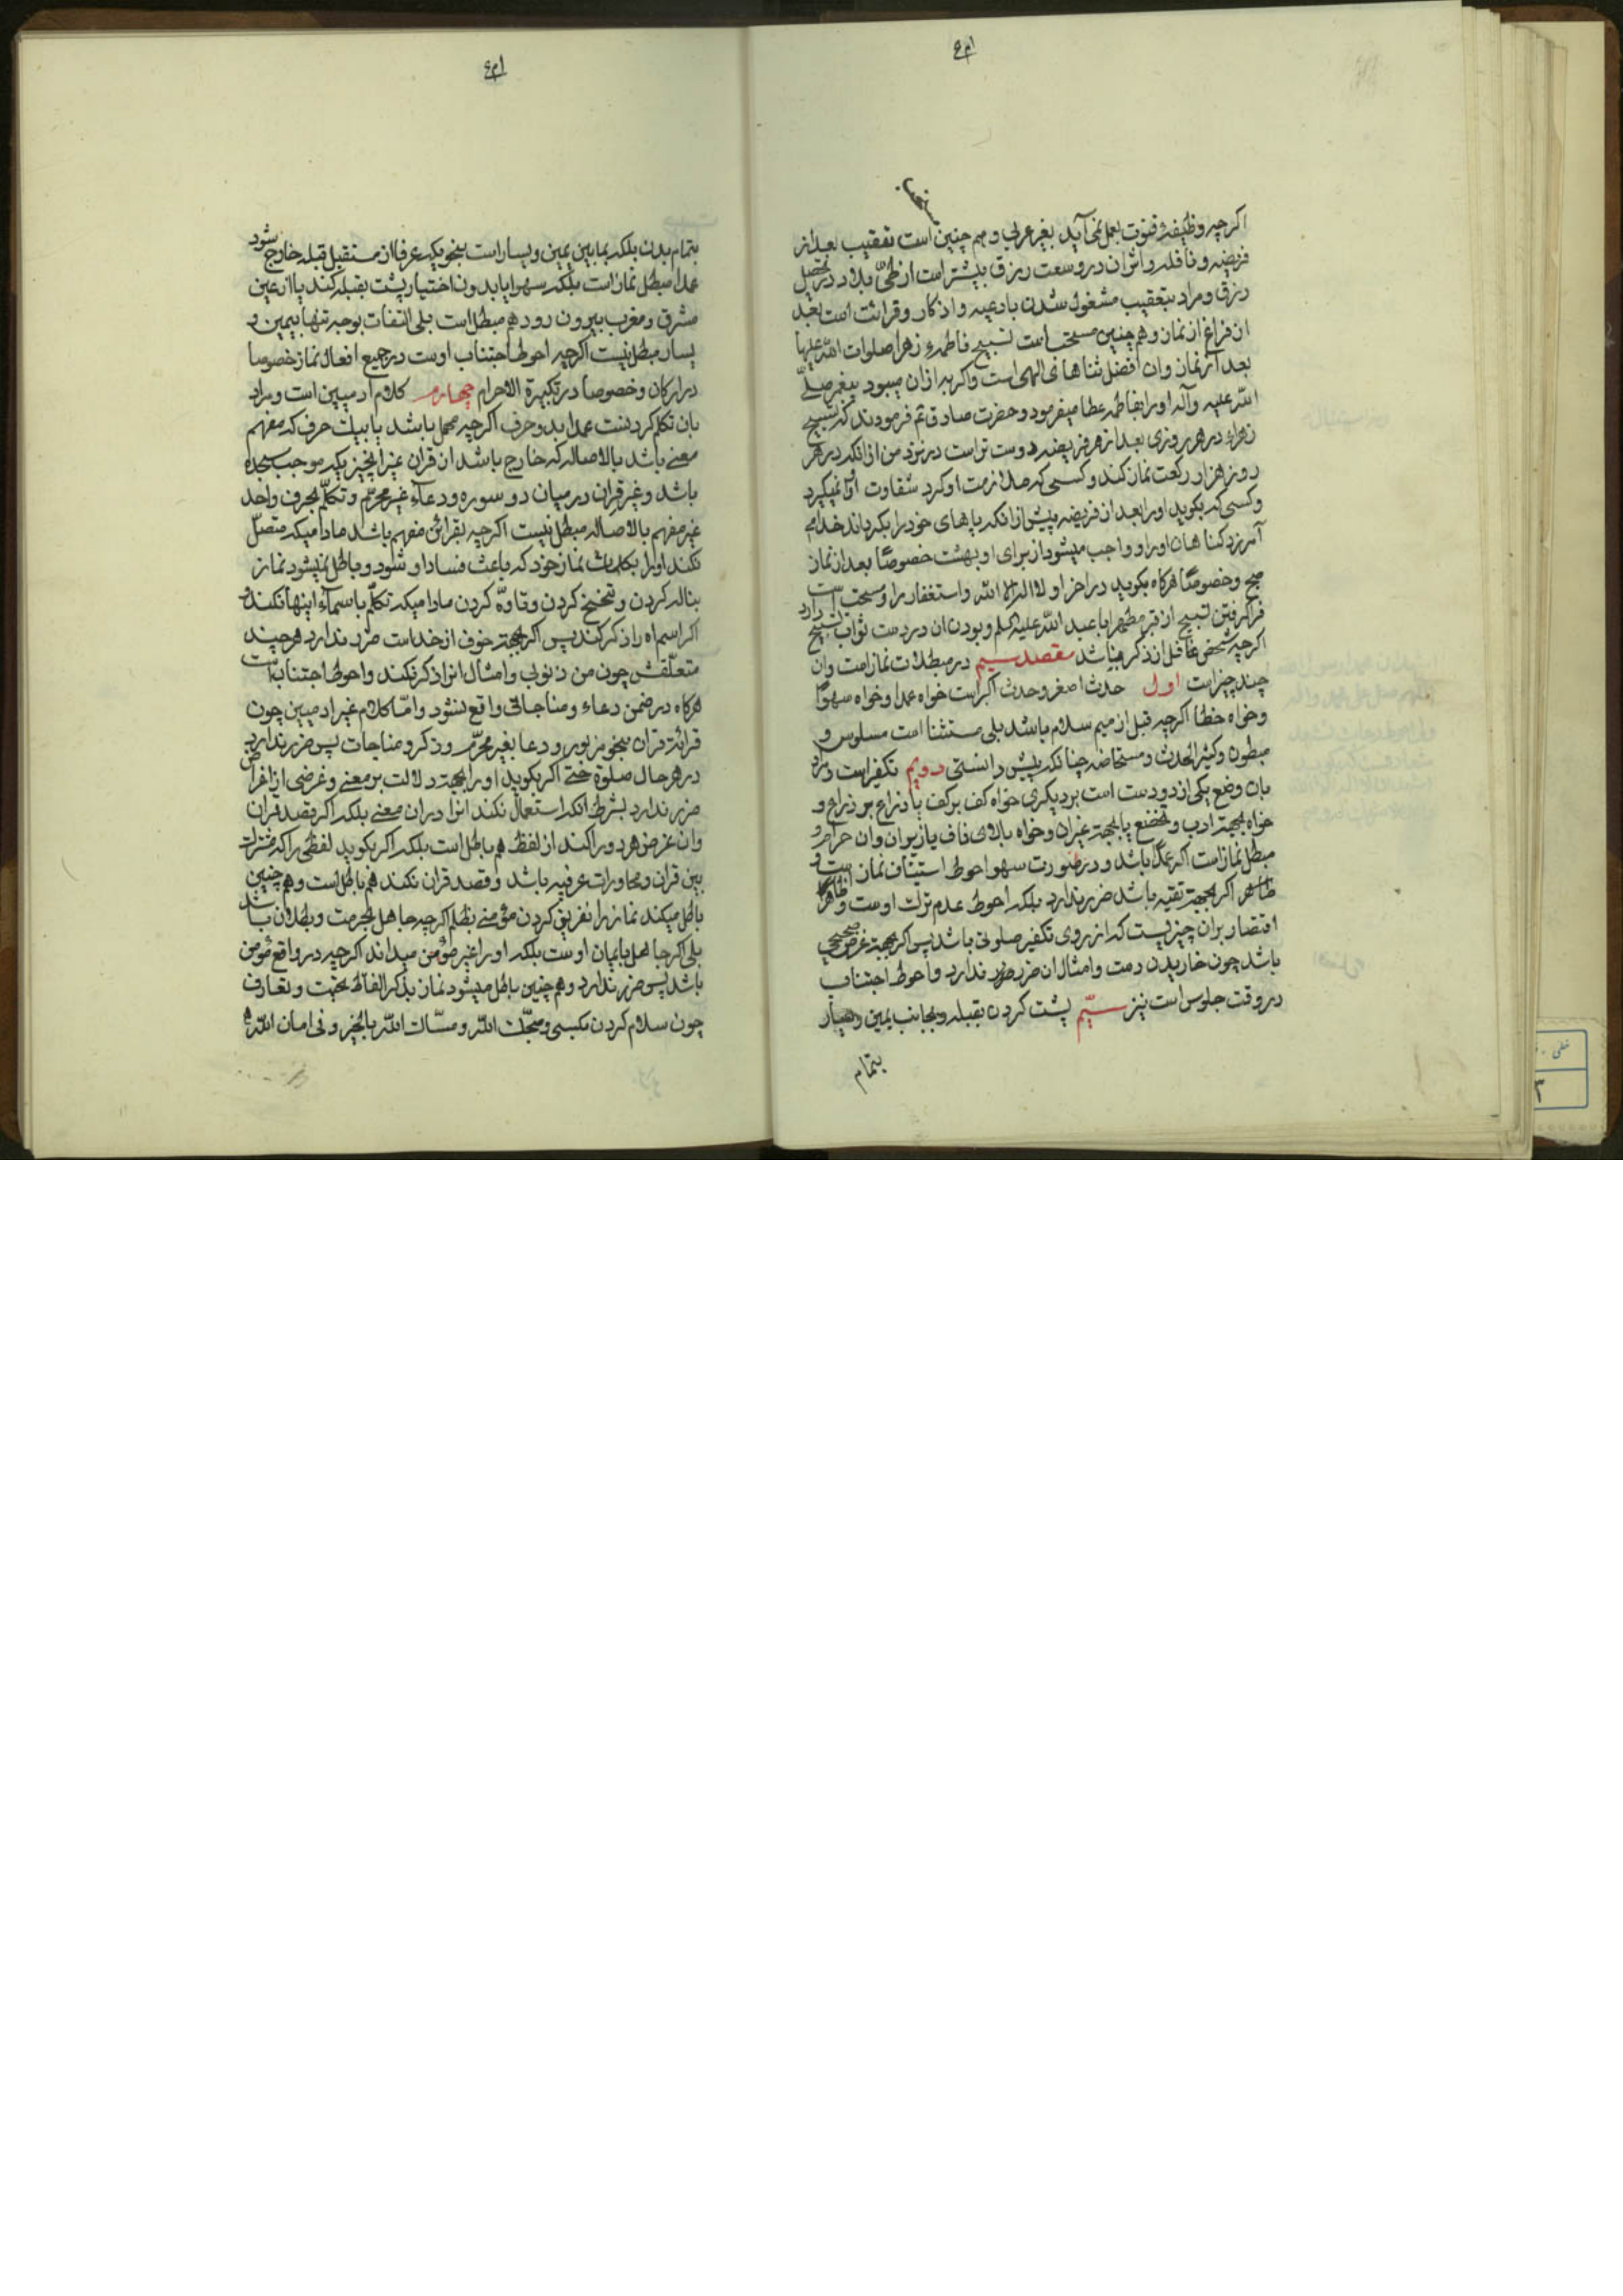 اگرچه وظیفه قنوت بعمل نمی آید بغیر عربی و هم چنین است تعقیب بعد از
مستحب
فریضه و نافله و اثر ان در وسعت رزق بیشتر است از طیّ بلاد در تحصیل
رزق و مراد بتعقیب مشغول شدن بادعیه و اذکار و قرائت است بعد
از فراغ از نماز و هم چنین مستحب است تسبیح فاطمهٔ زهرا صلوات الله علیها
بعد از نماز و ان افضل ثناهای الهی است و اگر به از ان میبود پیغمبر صلّی
الله علیه و آله او را بفاطمه عطا میفرمود و حضرت صادق ع فرمودند که تسبیح
زهراء در هر روزی بعد از هر فریضه دوست تر است در نزد من از انکه در هر
روز هزار رکعت نماز کنند و کسی که ملازمت او کرد شقاوت او را نمیگیرد
و کسی که بگوید او را بعد از فریضه پیش از انکه پاهای خود را بگرداند خدا می
آمرزد گناهان او را و واجب میشود از برای او بهشت خصوصًا بعد از نماز
صبح و خصوصًا هرگاه بگوید در اخر او لا اله الا الله و استغفار را و مستحب است
فراگرفتن تسبیح از قبر مطهر ابا عبد الله علیه السلم و بودن ان در دست ثواب تسبیح دارد
اگرچه شخص غافل از ذکر باشد مقصد سیم در مبطلات نماز است و ان
چند چیز است اول حدث اصغر و حدث اکبر است خواه عمدا و خواه سهوًا
و خواه خطا اگرچه قبل از میم سلام باشد بلی مستثنا است مسلوس و
مبطون و کثیر الحدث و مستحاضه چنانکه پیش دانستی دویم تکفیر است و مراد
بان وضع یکی از دو دست است بر دیگری خواه کف بر کف یا ذراع بر ذراع و
خواه بجهة ادب و تخضع یا بجهة غیر ان و خواه بالای ناف یا زیر ان و ان حرام و
مبطل نماز است اگر عمدًا باشد و در صورت سهو احوط استیناف نماز است و
ظاهر اگر بجهة تقیه باشد ضرر ندارد بلکه احوط عدم ترک اوست و ظاهرًا
اقتصار بر ان چیزیست که از روی تکفیر صلوتی باشد پس اگر بجهة غرض صحیحی
باشد چون خاریدن دست و امثال ان ضرر ندارد و احوط اجتناب
در وقت جلوس است نیز سیّم پشت کردن بقبله و بجانب یمین و یسار
بتمام
بتمام بدن بلکه بمابین یمین و یسار است بنحویکه عرفا از مستقبل قبله خارج شود
عمدا مبطل نماز است بلکه سهوا یا بدون اختیار پشت بقبله کند یا از عین
مشرق و مغرب بیرون رود هم مبطل است بلی التفات بوجه تنها بیمین و
یسار مبطل نیست اگرچه احوط اجتناب اوست در جمیع افعال نماز خصوصا
در ارکان و خصوصا در تکبیرة الاحرام چهارم کلام ادمیین است و مراد
بان تکلم کردنست عمدا بدو حرف اگرچه مهمل باشد یا بیک حرف که مفهم
معنی باشد بالاصاله که خارج باشد از قران غیر انچیزیکه موجب سجده
باشد و غیر قران در میان دو سوره و دعاء غیر محرّم و تکلّم بحرف واحد
غیر مفهم بالاصاله مبطل نیست اگرچه بقرائن مفهم باشد مادامیکه متصل
نکند او را بکلمات نماز خود که باعث فساد او شود و باطل نمیشود نماز
بناله کردن و تنحنح کردن و تاوّه کردن مادامیکه تکلّم باسماء اینها نکند و
اگر اسم اه را ذکر کند پس اگر بجهة خوف از خداست ضرر ندارد هرچند
متعلّقش چون من ذنوبی و امثال انرا ذکر نکند و احوط اجتناب است
هرگاه در ضمن دعاء و مناجاتی واقع نشود و امّا کلام غیر ادمیین چون
قرائة قران بنحو مزبور و دعا بغیر محرّم و ذکر و مناجات پس ضرر ندارد
در هر حال صلوة حتی اگر بگوید او را بجهة دلالت بر معنی و غرضی از اغراض
ضرر ندارد بشرط انکه استعمال نکند انرا در ان معنی بلکه اگر قصد قران
و ان غرض هر دو را کند از لفظ هم باطل است بلکه اگر بگوید لفظی را که مشترک
بین قران و محاورات عرفیه باشد و قصد قران نکند هم باطل است و هم چنین
باطل میکند نماز را نفرین کردن مؤمنی بظلم اگرچه جاهل بحرمت و بطلان باشد
بلی اگر جاهل بایمان اوست بلکه او را غیر مؤمن میداند اگرچه در واقع مؤمن
باشد پس ضرر ندارد و هم چنین باطل میشود نماز بذکر الفاظ تحیت و تعارف
چون سلام کردن بکسی و صبّحک الله و مسّاک الله بالخیر و فی امان الله